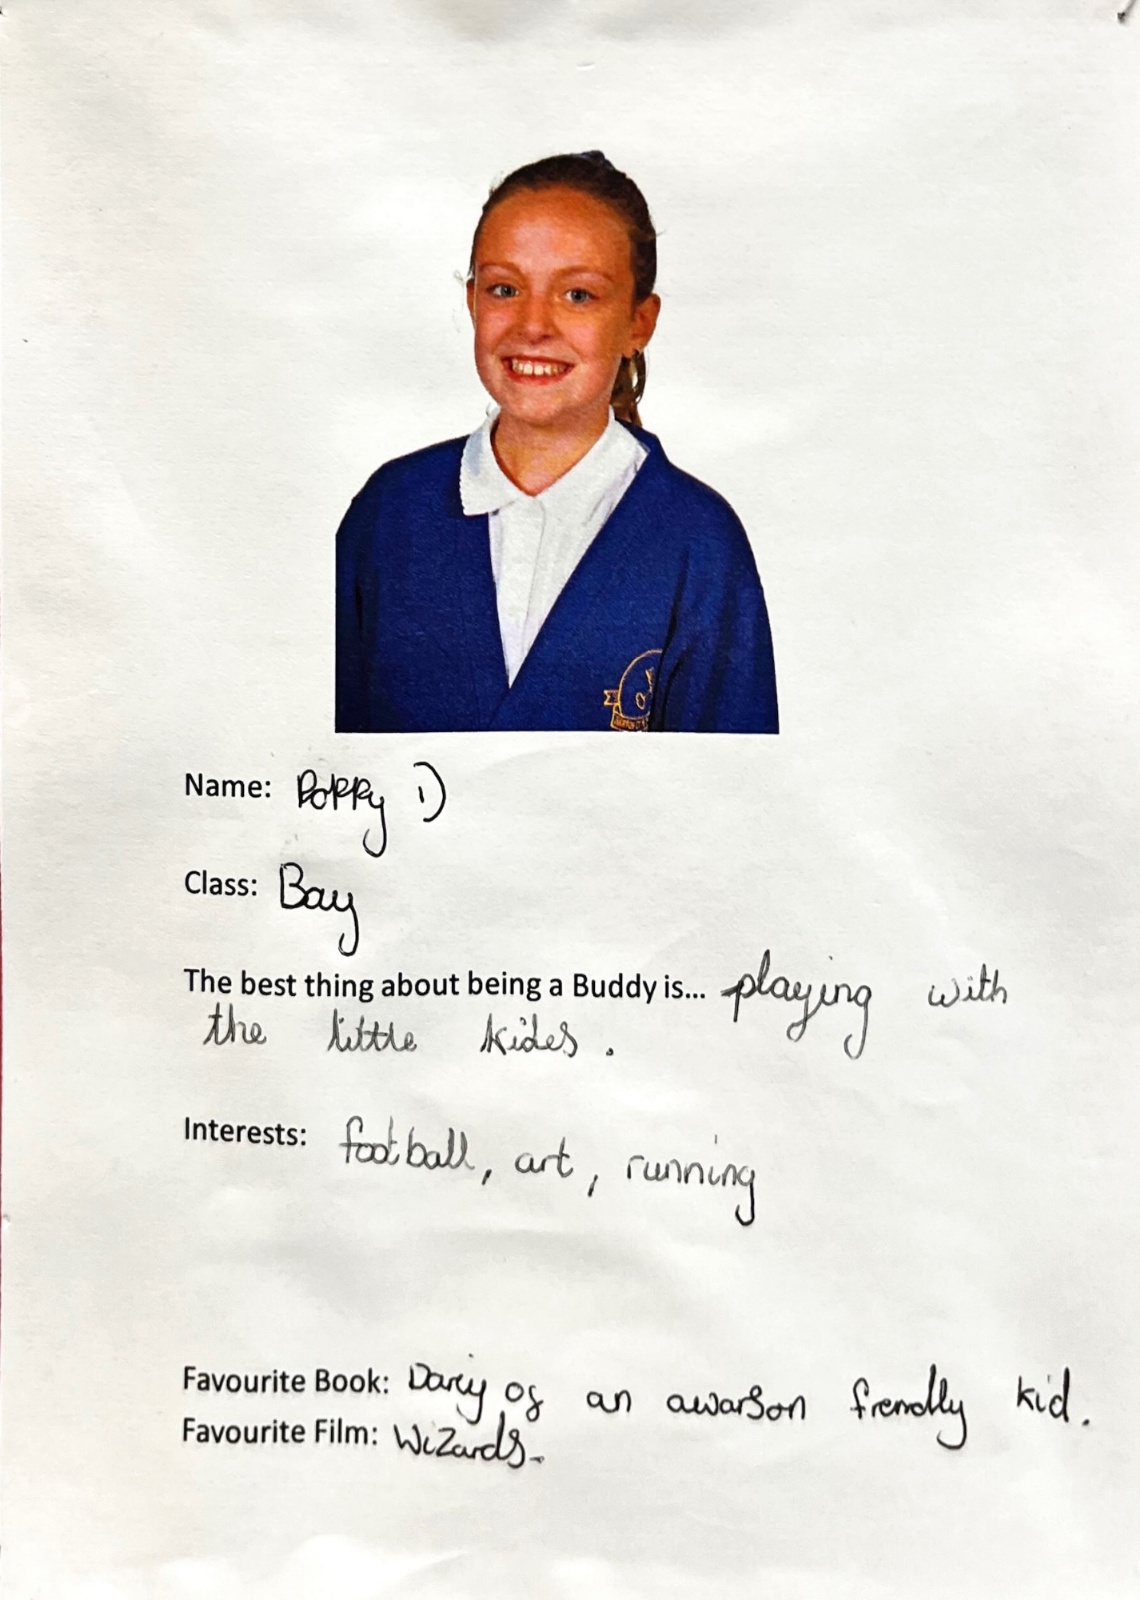 Name: Poppy D
Class: Bay
The best thing about being a Buddy is... playing with
the little kides.
Interests: football, art, running
Favourite Book: Darcy of an awarson frendly kid.
Favourite Film: Wizards.